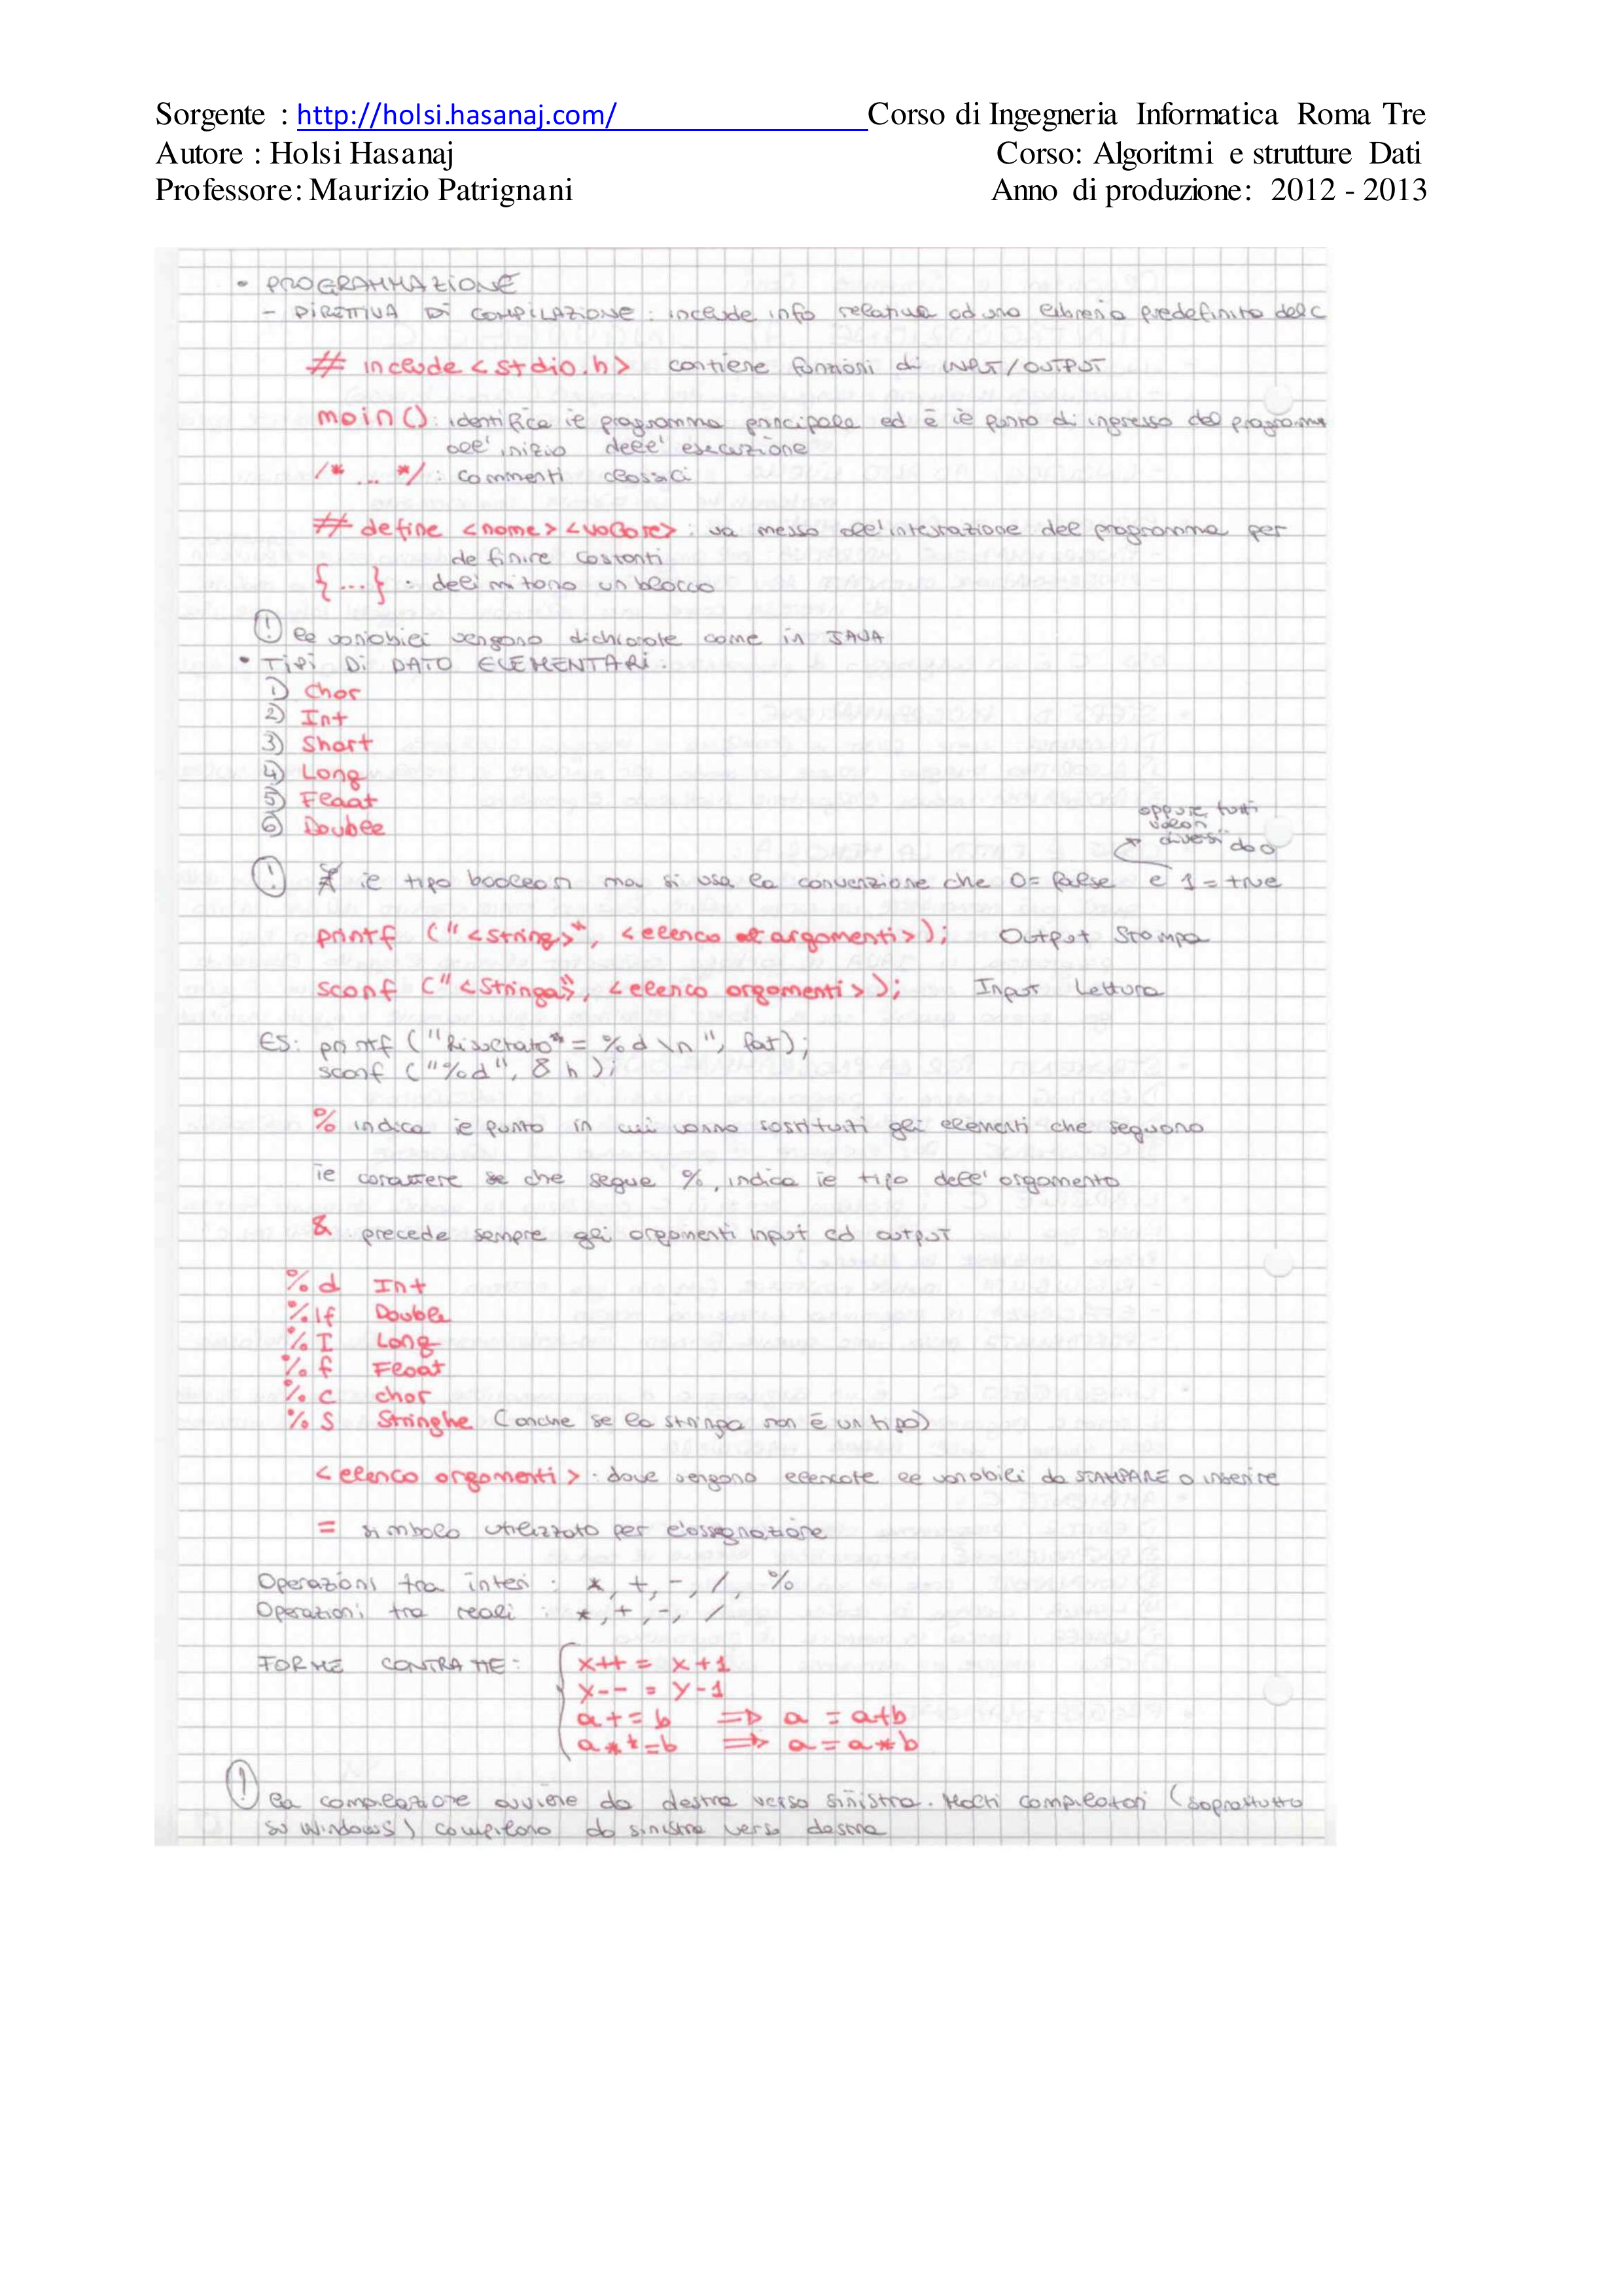 Sorgente : http://holsi.hasanaj.com/ Corso di Ingegneria Informatica Roma Tre
Autore : Holsi Hasanaj Corso: Algoritmi e strutture Dati
Professore: Maurizio Patrignani Anno di produzione: 2012 - 2013
• PROGRAMMAZIONE
- DIRETTIVA DI COMPILAZIONE: include info relative ad una libreria predefinita del C
# include <stdio.h> contiene funzioni di INPUT/OUTPUT
main(): identifica il programma principale ed è il punto di ingresso del programma
all'inizio dell'esecuzione
/* ... */ : commenti classici
# define <nome> <valore>: va messo all'intestazione del programma per
definire costanti
{...} : delimitano un blocco
! le variabili vengono dichiarate come in JAVA
• TIPI DI DATO ELEMENTARI:
1) Char
2) Int
3) Short
4) Long
5) Float
6) Double
oppure tutti
valori
diversi da 0
! ∄ il tipo boolean ma si usa la convenzione che 0 = false e 1 = true
printf ("<string>", <elenco argomenti>); Output Stampa
scanf ("<Stringa>", <elenco argomenti>); Input Lettura
ES: printf ("Risultato = %d \n", fat);
scanf ("%d", & h);
% indica il punto in cui vanno sostituiti gli elementi che seguono
il carattere che segue %, indica il tipo dell'argomento
& precede sempre gli argomenti input ed output
%d Int
%lf Double
%I Long
%f Float
%c char
%S Stringhe (anche se la stringa non è un tipo)
<elenco argomenti>: dove vengono elencate le variabili da STAMPARE o inserire
= simbolo utilizzato per l'assegnazione
Operazioni tra interi : *, +, -, /, %
Operazioni tra reali : *, +, -, /
FORME CONTRATTE: x++ = x+1
y-- = y-1
a+=b => a = a+b
a*=b => a = a*b
! La compilazione avviene da destra verso sinistra. Molti compilatori (soprattutto
su Windows) compilano da sinistra verso destra